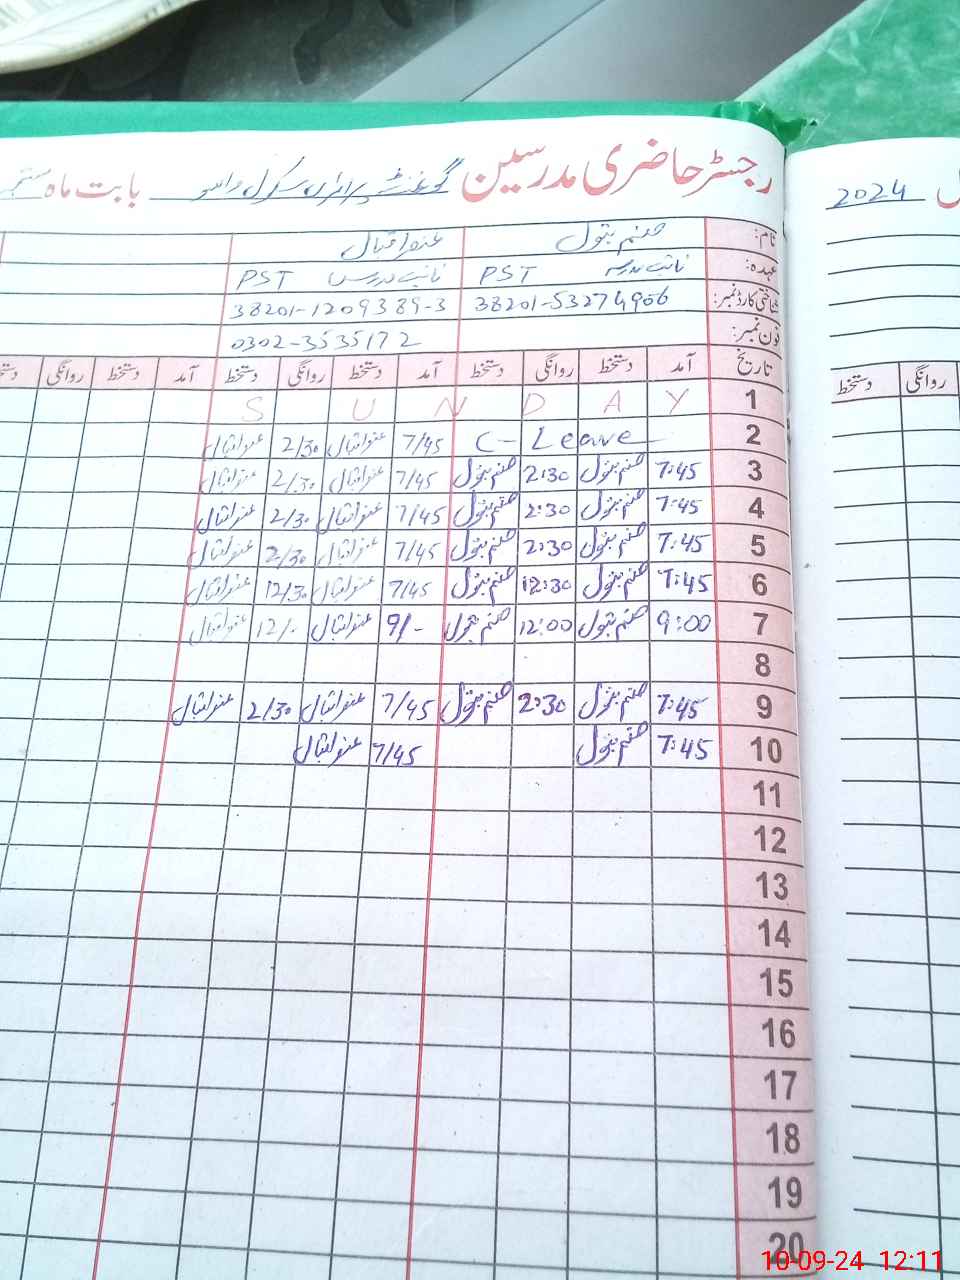 رجسٹر حاضری مدرسین گورنمنٹ پرائمری سکول بابت ماہ ستمبر
2024
نام: صنم بتول عنصر اقبال
عہدہ: نائب مدرسہ PST نائب مدرس PST
شناختی کارڈ نمبر: 38201-53274906 38201-1209389-3
فون نمبر: 0302-3535172
تاریخ آمد دستخط روانگی دستخط آمد دستخط روانگی دستخط آمد دستخط روانگی دستخط
روانگی دستخط
1 S U N D A Y
2 C- Leave 7/45 عنصر اقبال 2/30 عنصر اقبال
3 7:45 صنم بتول 2:30 صنم بتول 7/45 عنصر اقبال 2/30 عنصر اقبال
4 7:45 صنم بتول 2:30 صنم بتول 7/45 عنصر اقبال 2/30 عنصر اقبال
5 7:45 صنم بتول 2:30 صنم بتول 7/45 عنصر اقبال 2/30 عنصر اقبال
6 7:45 صنم بتول 12:30 صنم بتول 7/45 عنصر اقبال 12/30 عنصر اقبال
7 9:00 صنم بتول 12:00 صنم بتول 9/- عنصر اقبال 12/- عنصر اقبال
8
9 7:45 صنم بتول 2:30 صنم بتول 7/45 عنصر اقبال 2/30 عنصر اقبال
10 7:45 صنم بتول 7/45 عنصر اقبال
11
12
13
14
15
16
17
18
19
20
10-09-24 12:11